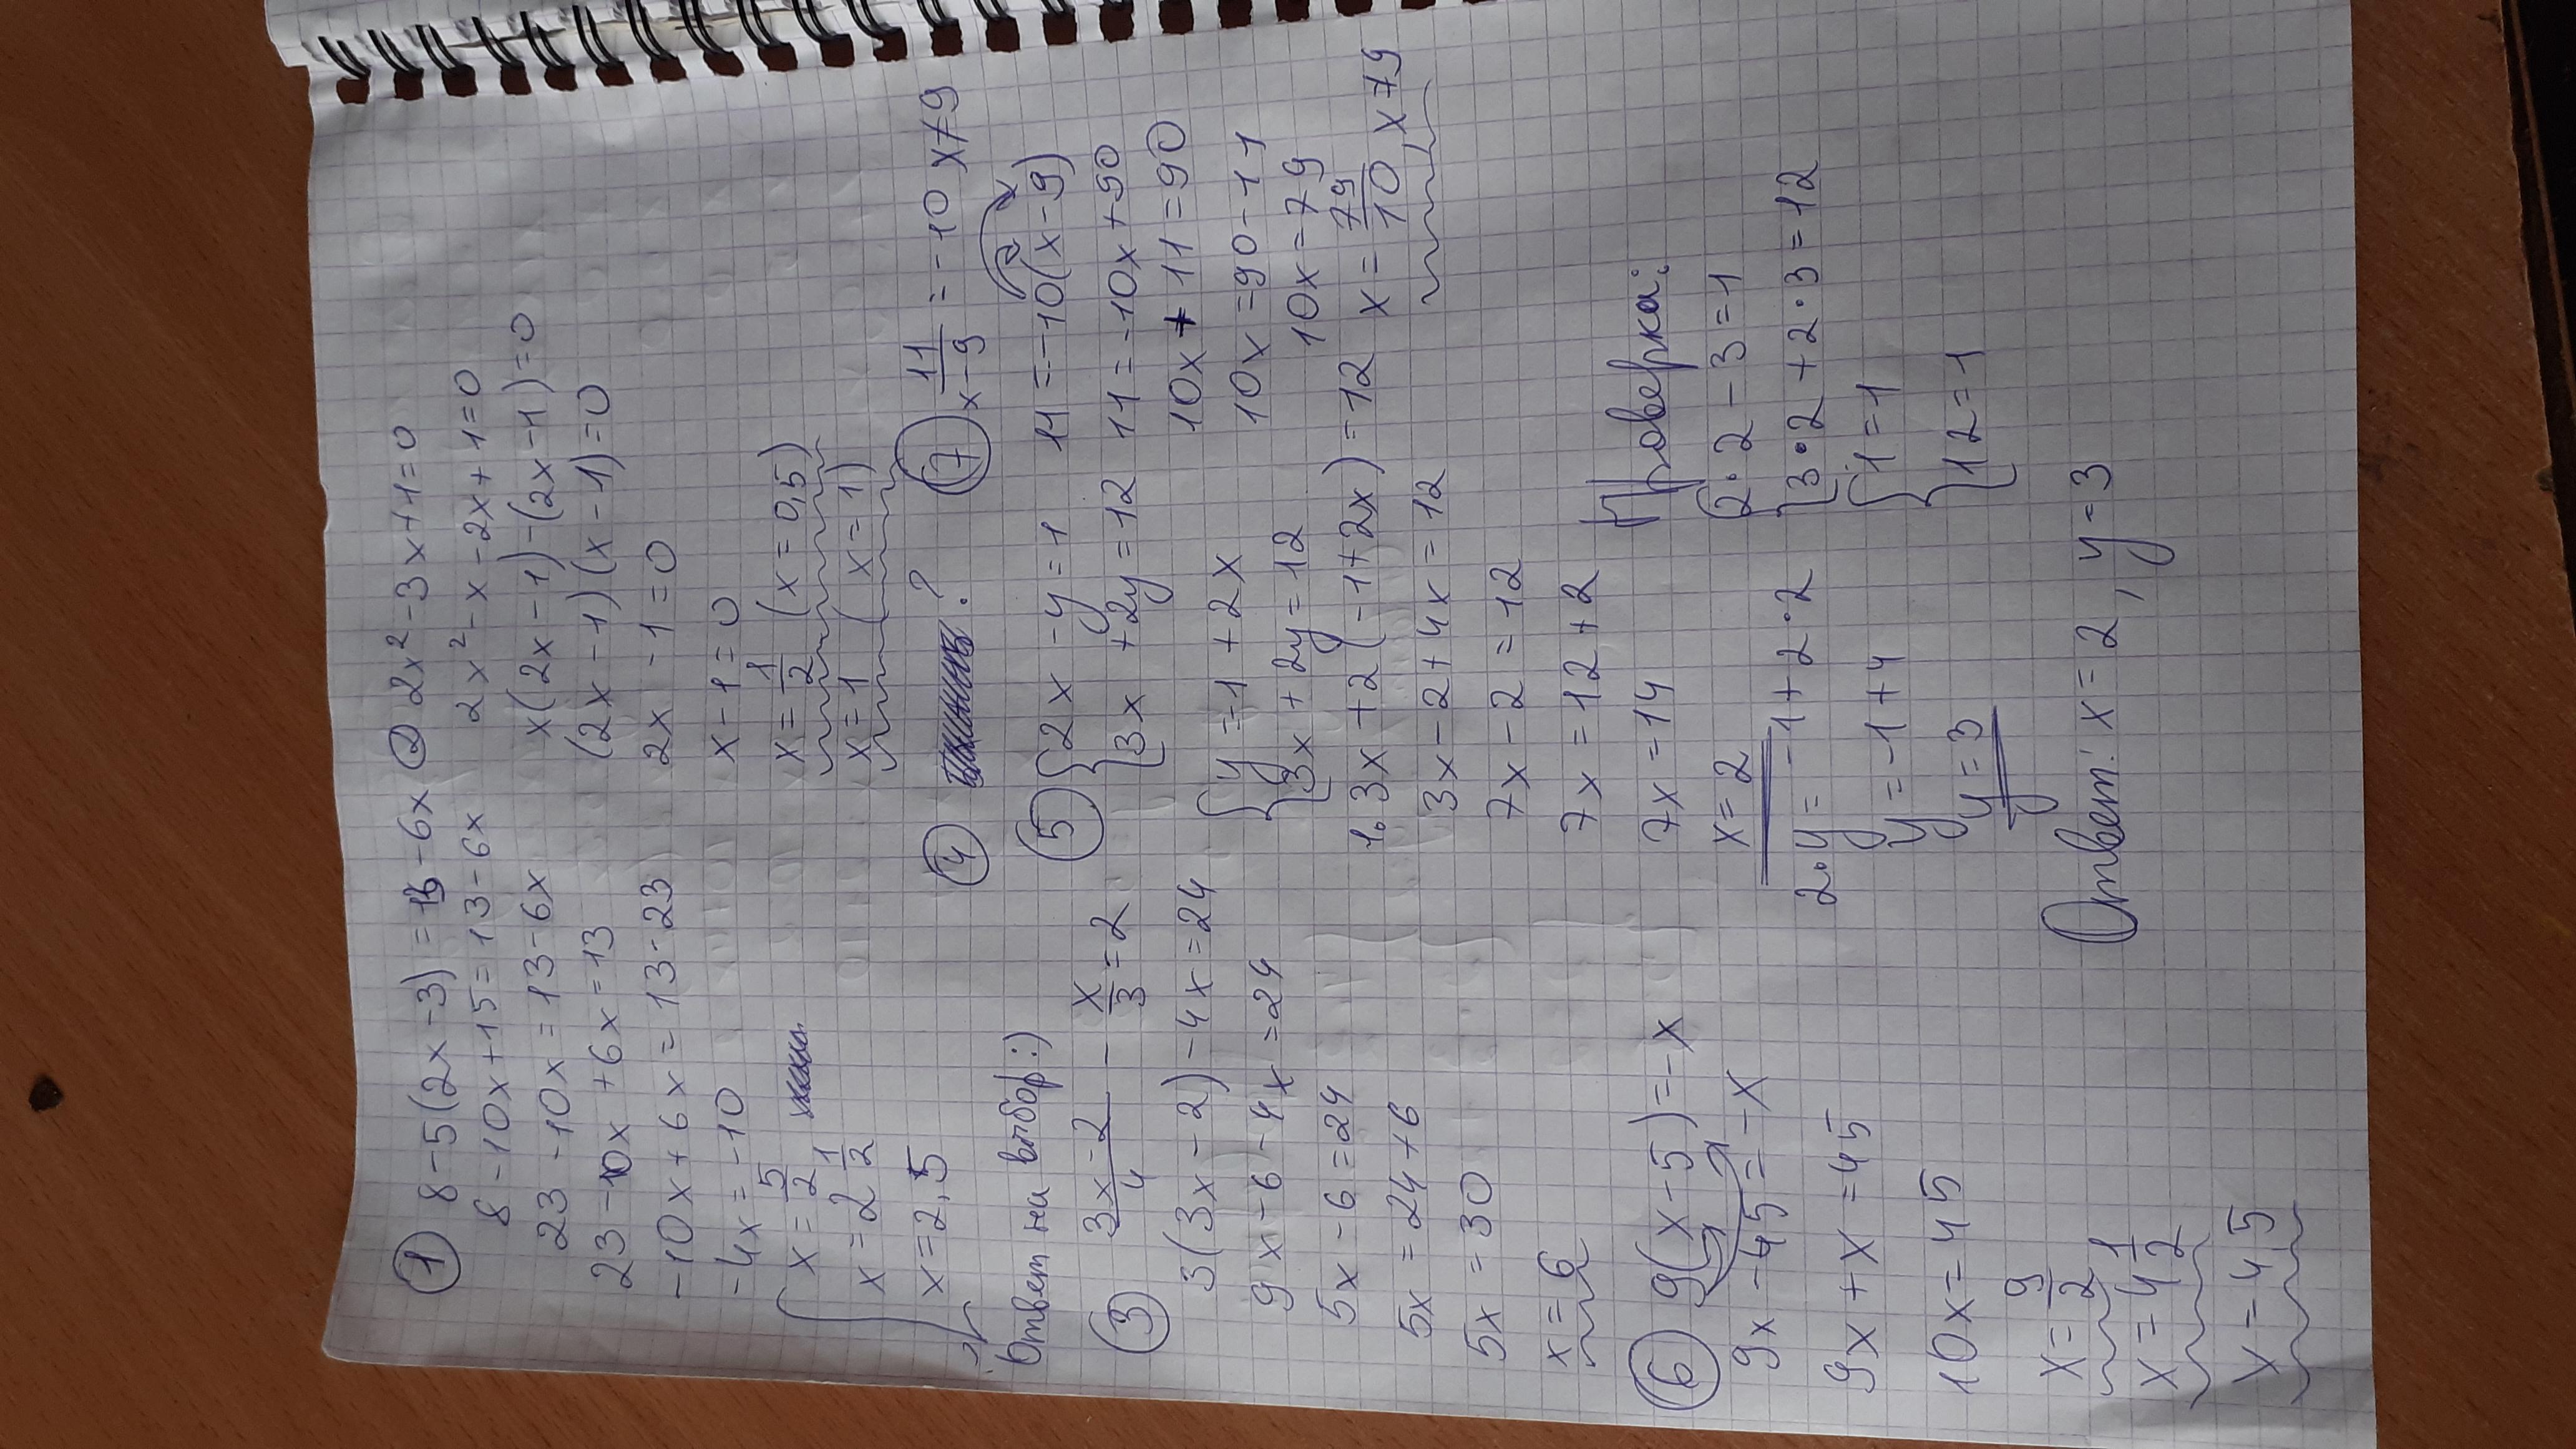 ① 8-5(2x-3)=13-6x
8-10x+15=13-6x
23-10x=13-6x
23-10x+6x=13
-10x+6x=13-23
-4x=-10
x=5/2
x=2 1/2
x=2,5
Ответ на выбор:)
② 2x²-3x+1=0
2x²-x-2x+1=0
x(2x-1)-(2x-1)=0
(2x-1)(x-1)=0
2x-1=0
x-1=0
x=1/2 (x=0,5)
x=1 (x=1)
③ (3x-2)/4 - x/3=2
3(3x-2)-4x=24
9x-6-4x=24
5x-6=24
5x=24+6
5x=30
x=6
④ ?
⑤ {2x-y=1
{3x+2y=12
{y=-1+2x
{3x+2y=12
1. 3x+2(-1+2x)=12
3x-2+4x=12
7x-2=12
7x=12+2
7x=14
x=2
2. y=-1+2·2
y=-1+4
y=3
Проверка:
{2·2-3=1
{3·2+2·3=12
{1=1
{12=1
Ответ: x=2, y=3
⑥ 9(x-5)=-x
9x-45=-x
9x+x=45
10x=45
x=9/2
x=4 1/2
x=4,5
⑦ 11/(x-9)=-10 x≠9
11=-10(x-9)
11=-10x+90
10x+11=90
10x=90-11
10x=79
x=79/10, x≠9